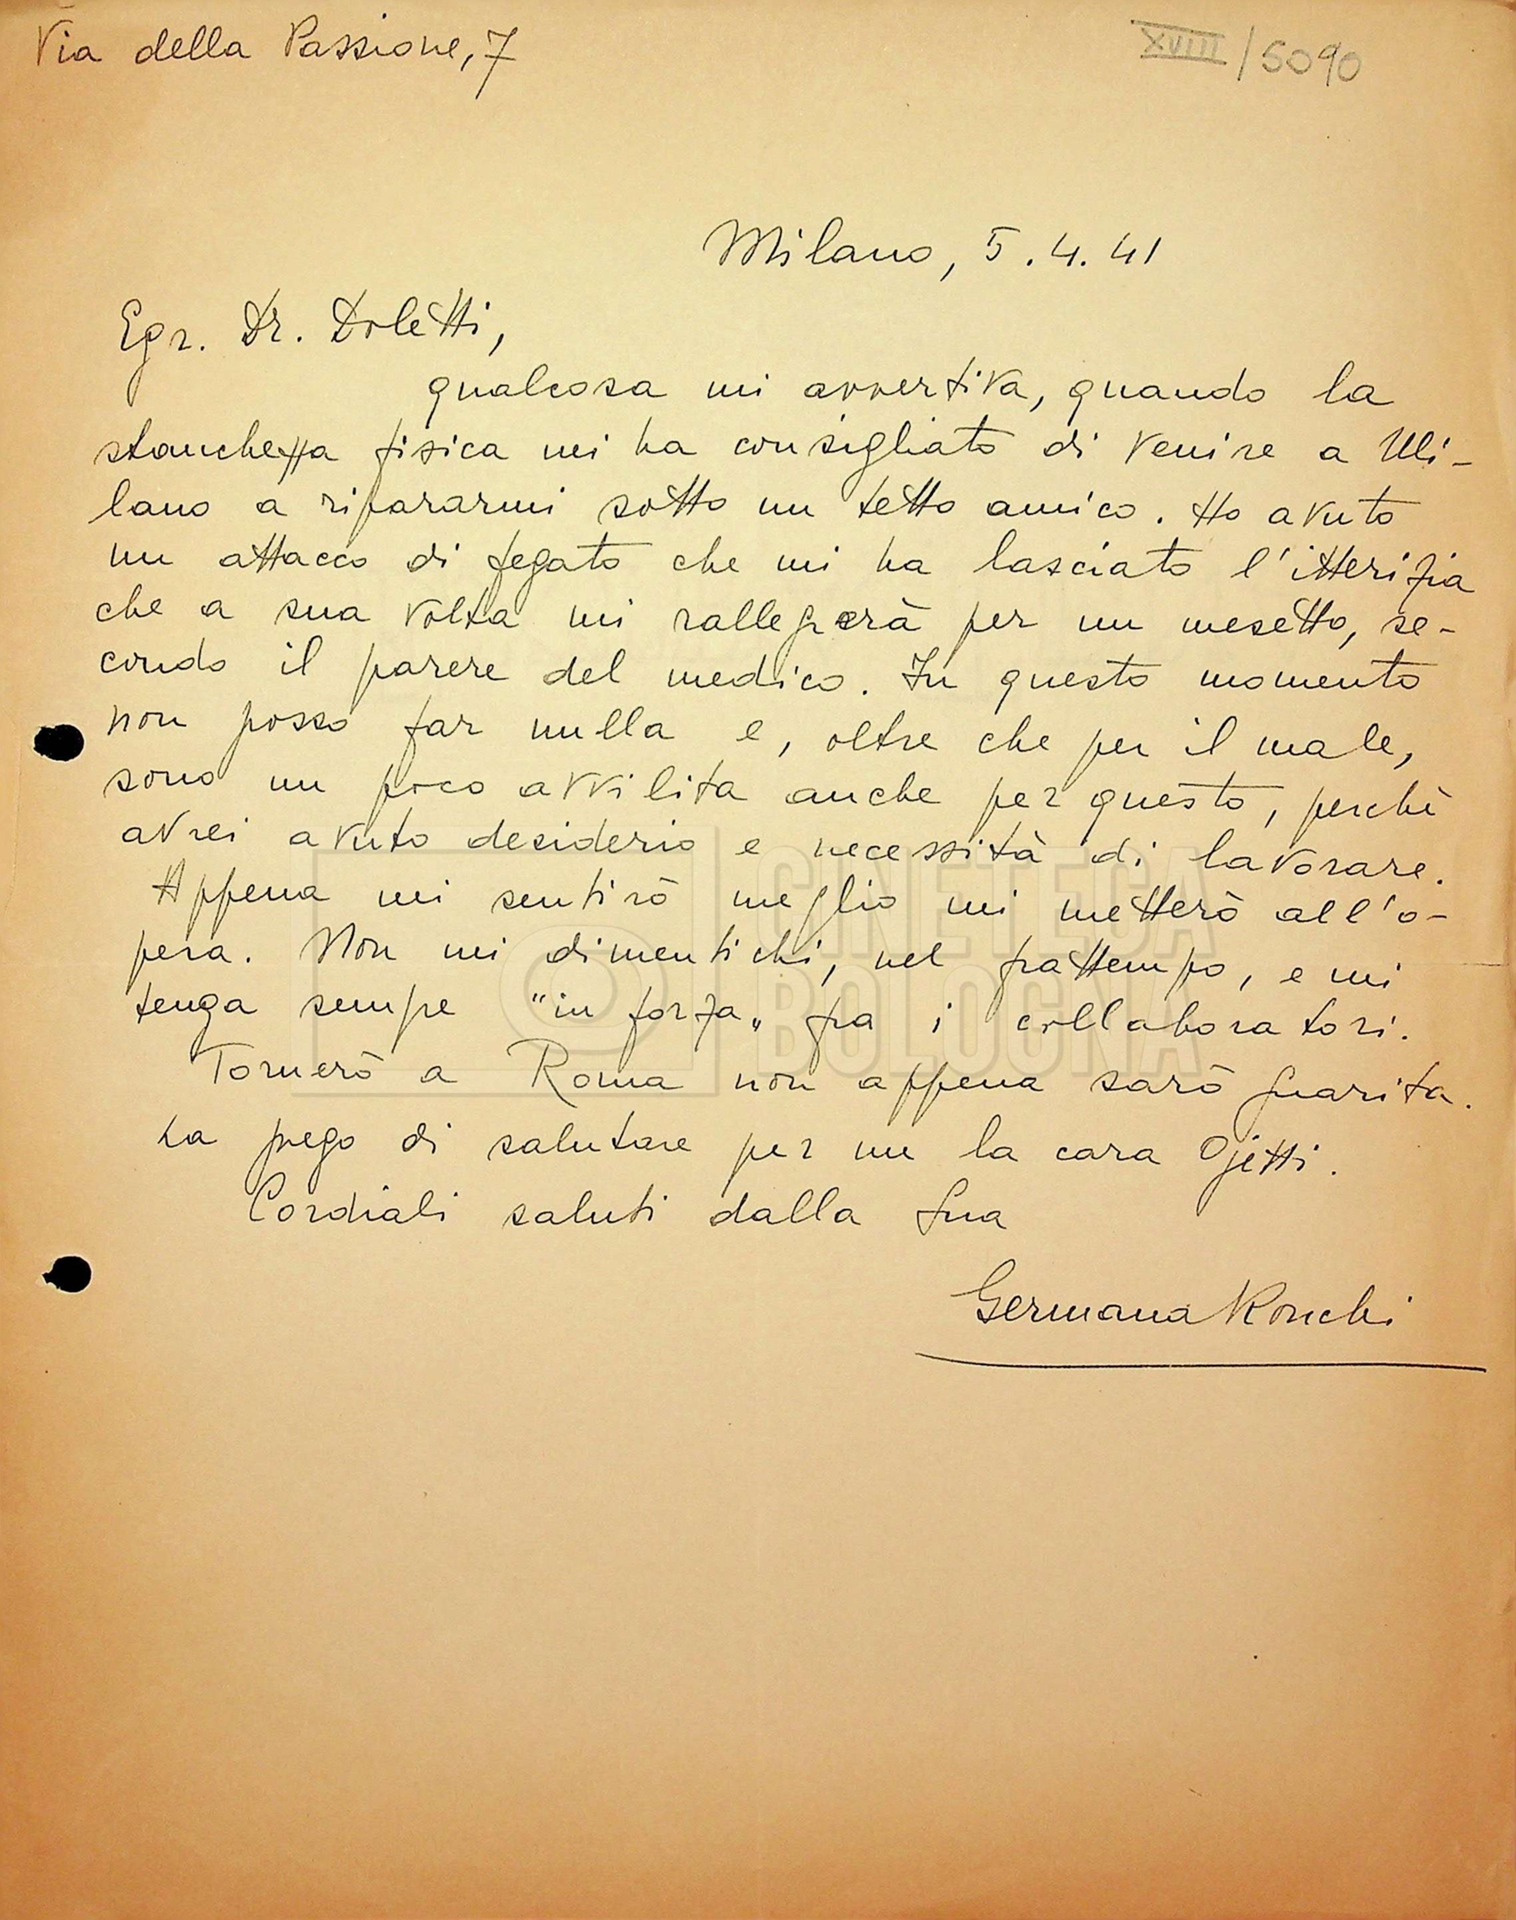 Via della Passione, 7
XVIII/5090
Milano, 5.4.41
Egr. Dr. Doletti,
qualcosa mi avvertiva, quando la
stanchezza fisica mi ha consigliato di venire a Mi-
lano a ripararmi sotto un tetto amico. Ho avuto
un attacco di fegato che mi ha lasciato l'itterizia
che a sua volta mi rallegrerà per un mesetto, se-
condo il parere del medico. In questo momento
non posso far nulla e, oltre che per il male,
sono un poco avvilita anche per questo, perchè
avrei avuto desiderio e necessità di lavorare.
Appena mi sentirò meglio mi metterò all'o-
pera. Non mi dimentichi, nel frattempo, e mi
tenga sempre "in forza" fra i collaboratori.
Tornerò a Roma non appena sarò guarita.
La prego di salutare per me la cara Ojetti.
Cordiali saluti dalla Sua
Germana Ronchi
CINETECA
BOLOGNA